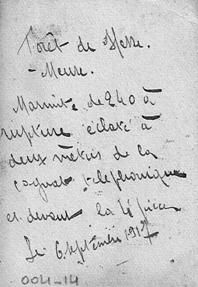 Forêt de Hesse.
- Meuse.
Marmite de 240 à
rupture éclaté à
deux mètres de la
téléphonique
et devant la 4e pièce
Le 6 septembre 1917
004-14